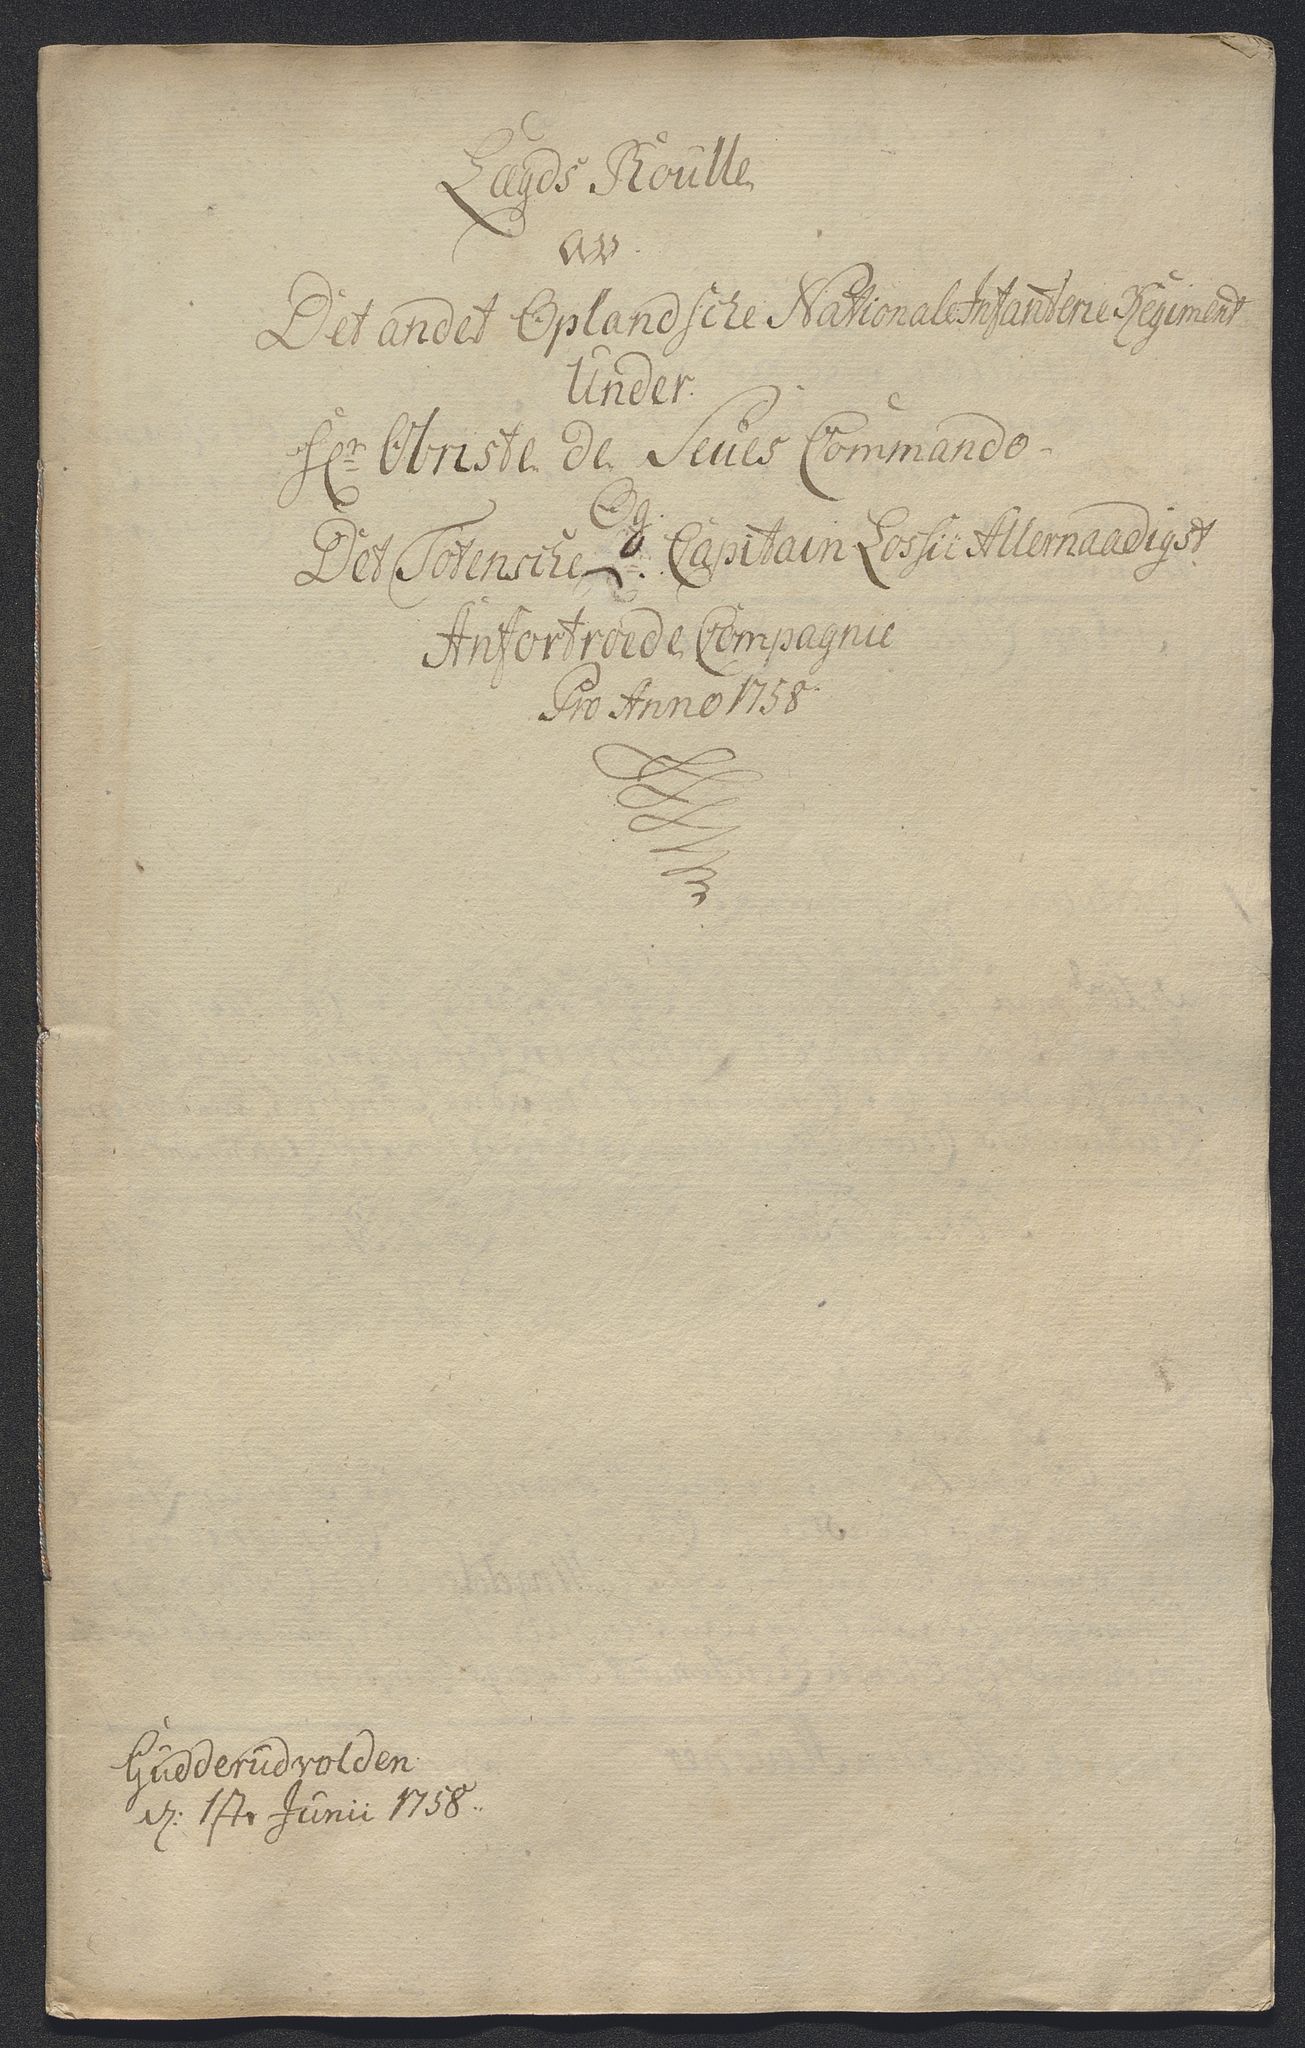 Lægds Roulle
av
Det andet Oplandsche Nationale Infanterie Regiment
Under
Hr. Obriste de Seues Commando
Og
Det Totensche Capitain Lossie Allernaadigst
Anfortroede Compagnie
Pro Anno 1758
Gudderudvolden
d: 1ste Junii 1758